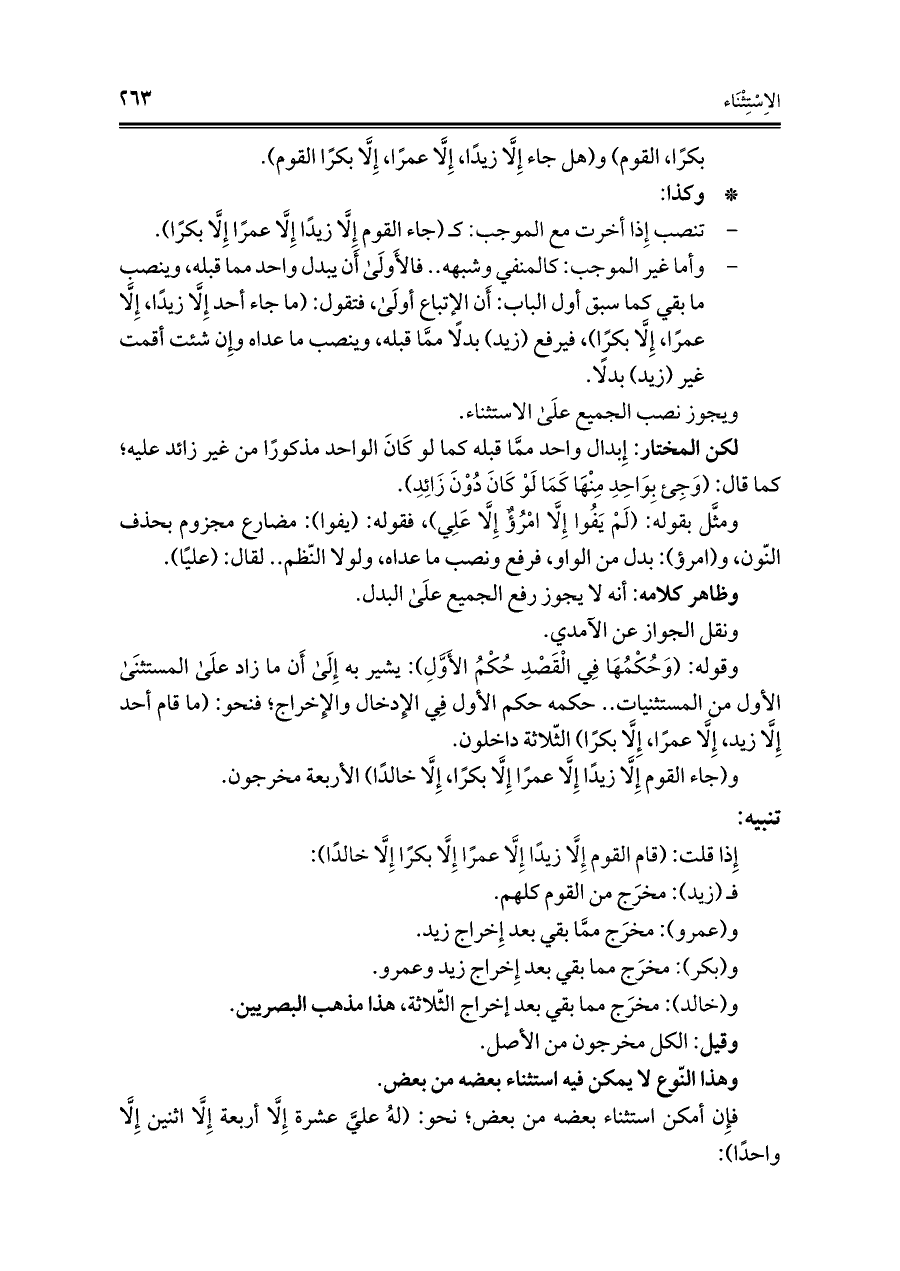 الِاسْتِثْنَاء ٢٦٣
بكرًا، القوم) و(هل جاء إِلَّا زيدًا، إِلَّا عمرًا، إِلَّا بكرًا القوم).
* وكذا:
- تنصب إِذا أخرت مع الموجب: كـ (جاء القوم إِلَّا زيدًا إِلَّا عمرًا إِلَّا بكرًا).
- وأما غير الموجب: كالمنفي وشبهه.. فالأَولَىٰ أَن يبدل واحد مما قبله، وينصب
ما بقي كما سبق أول الباب: أَن الإتباع أولَىٰ، فتقول: (ما جاء أحد إِلَّا زيدًا، إِلَّا
عمرًا، إِلَّا بكرًا)، فيرفع (زيد) بدلًا ممَّا قبله، وينصب ما عداه وإِن شئت أقمت
غير (زيد) بدلًا.
ويجوز نصب الجميع علَىٰ الاستثناء.
لكن المختار: إِبدال واحد ممَّا قبله كما لو كَانَ الواحد مذكورًا من غير زائد عليه؛
كما قال: (وَجِئ بِوَاحِدٍ مِنْهَا كَمَا لَوْ كَانَ دُوْنَ زَائِدِ).
ومثَّل بقوله: (لَمْ يَفُوا إِلَّا امْرُؤٌ إِلَّا عَلِي)، فقوله: (يفوا): مضارع مجزوم بحذف
النّون، و(امرؤ): بدل من الواو، فرفع ونصب ما عداه، ولولا النّظم.. لقال: (عليًا).
وظاهر كلامه: أنه لا يجوز رفع الجميع علَىٰ البدل.
ونقل الجواز عن الآمدي.
وقوله: (وَحُكْمُهَا فِي الْقَصْدِ حُكْمُ الأَوَّلِ): يشير به إِلَىٰ أَن ما زاد علَىٰ المستثنَىٰ
الأول من المستثنيات.. حكمه حكم الأول فِي الإِدخال والإِخراج؛ فنحو: (ما قام أحد
إِلَّا زيد، إِلَّا عمرًا، إِلَّا بكرًا) الثّلاثة داخلون.
و(جاء القوم إِلَّا زيدًا إِلَّا عمرًا إِلَّا بكرًا، إِلَّا خالدًا) الأربعة مخرجون.
تنبيه:
إِذا قلت: (قام القوم إِلَّا زيدًا إِلَّا عمرًا إِلَّا بكرًا إِلَّا خالدًا):
فـ (زيد): مخرَج من القوم كلهم.
و(عمرو): مخرَج ممَّا بقي بعد إِخراج زيد.
و(بكر): مخرَج مما بقي بعد إِخراج زيد وعمرو.
و(خالد): مخرَج مما بقي بعد إخراج الثّلاثة، هذا مذهب البصريين.
وقيل: الكل مخرجون من الأصل.
وهذا النّوع لا يمكن فيه استثناء بعضه من بعض.
فإِن أمكن استثناء بعضه من بعض؛ نحو: (لهُ عليَّ عشرة إِلَّا أربعة إِلَّا اثنين إِلَّا
واحدًا):